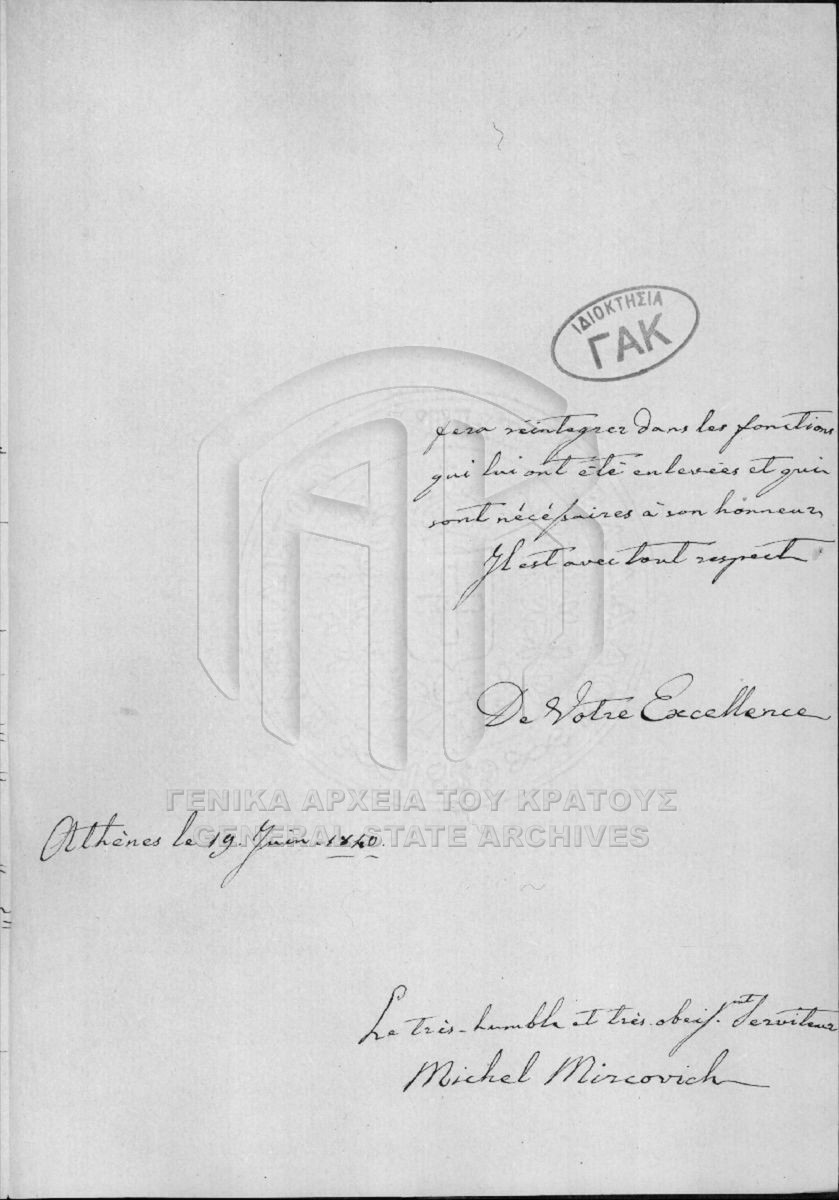 ΙΔΙΟΚΤΗΣΙΑ
ΓΑΚ
fera réintegrer dans les fonctions
qui lui ont été enlevées et qui
sont nécéssaires à son honneur,
Il est avec tout respect
De Votre Excellence
ΓΕΝΙΚΑ ΑΡΧΕΙΑ ΤΟΥ ΚΡΑΤΟΥΣ
GENERAL STATE ARCHIVES
Athènes le 19. Juin. 1840.
Le très-humble et très-obeiss.nt Serviteur
Michel Mircovich